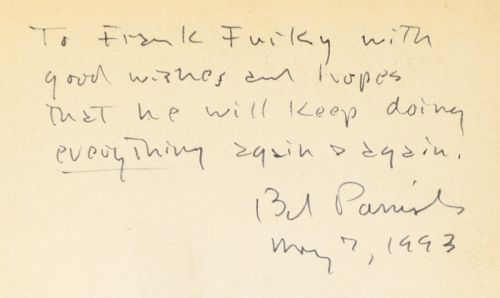 To Frank Furky with
good wishes and hopes
that he will keep doing
everything again & again.
Parrish
May 7, 1993